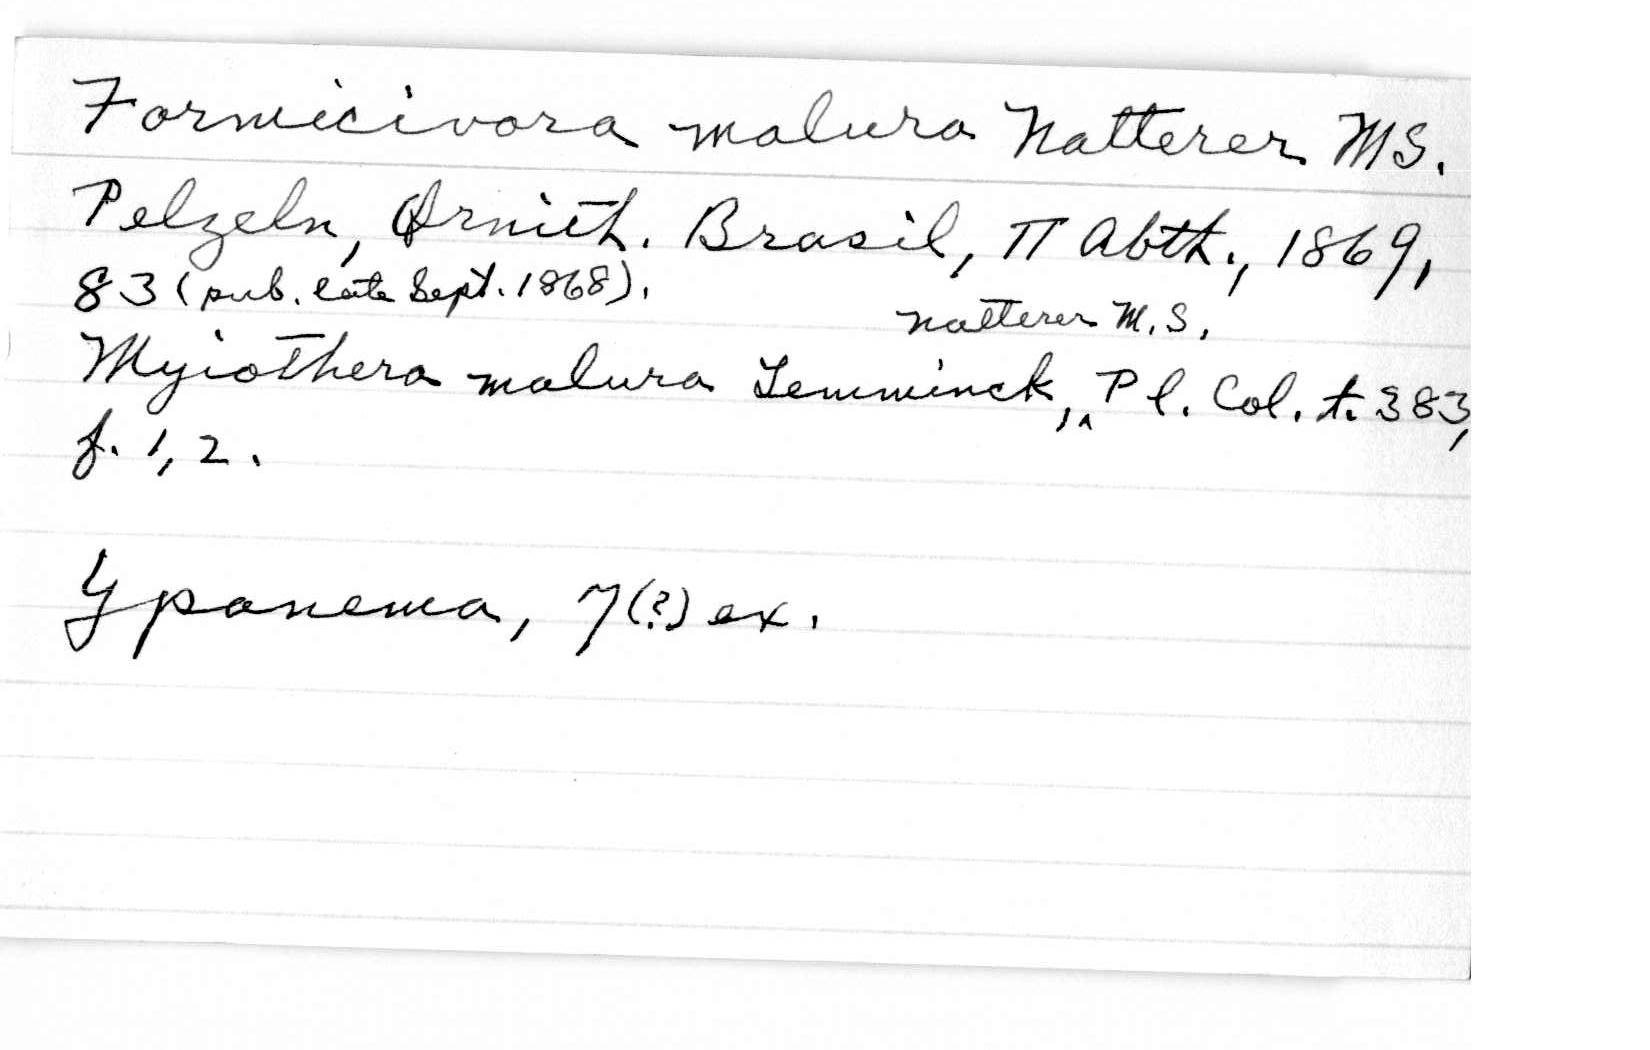 Formicivora malura Natterer MS.
Pelzeln, Ornith. Brasil, II Abth., 1869,
83 (pub. late Sept. 1868).
Natterer M.S.,
Myiothera malura Temminck, ‸ Pl. Col. t. 383,
f. 1, 2.
Ypanema, 7(?) ex.